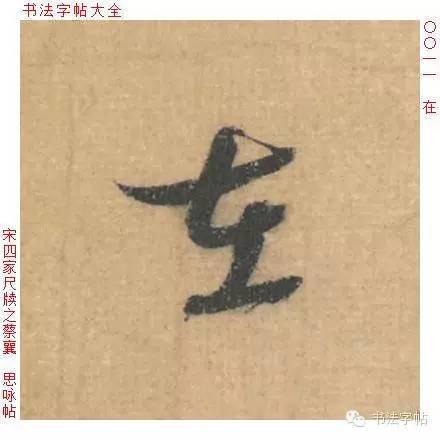 书法字帖大全
〇〇一一 在
在
宋四家尺牍之蔡襄 思咏帖
书法字帖